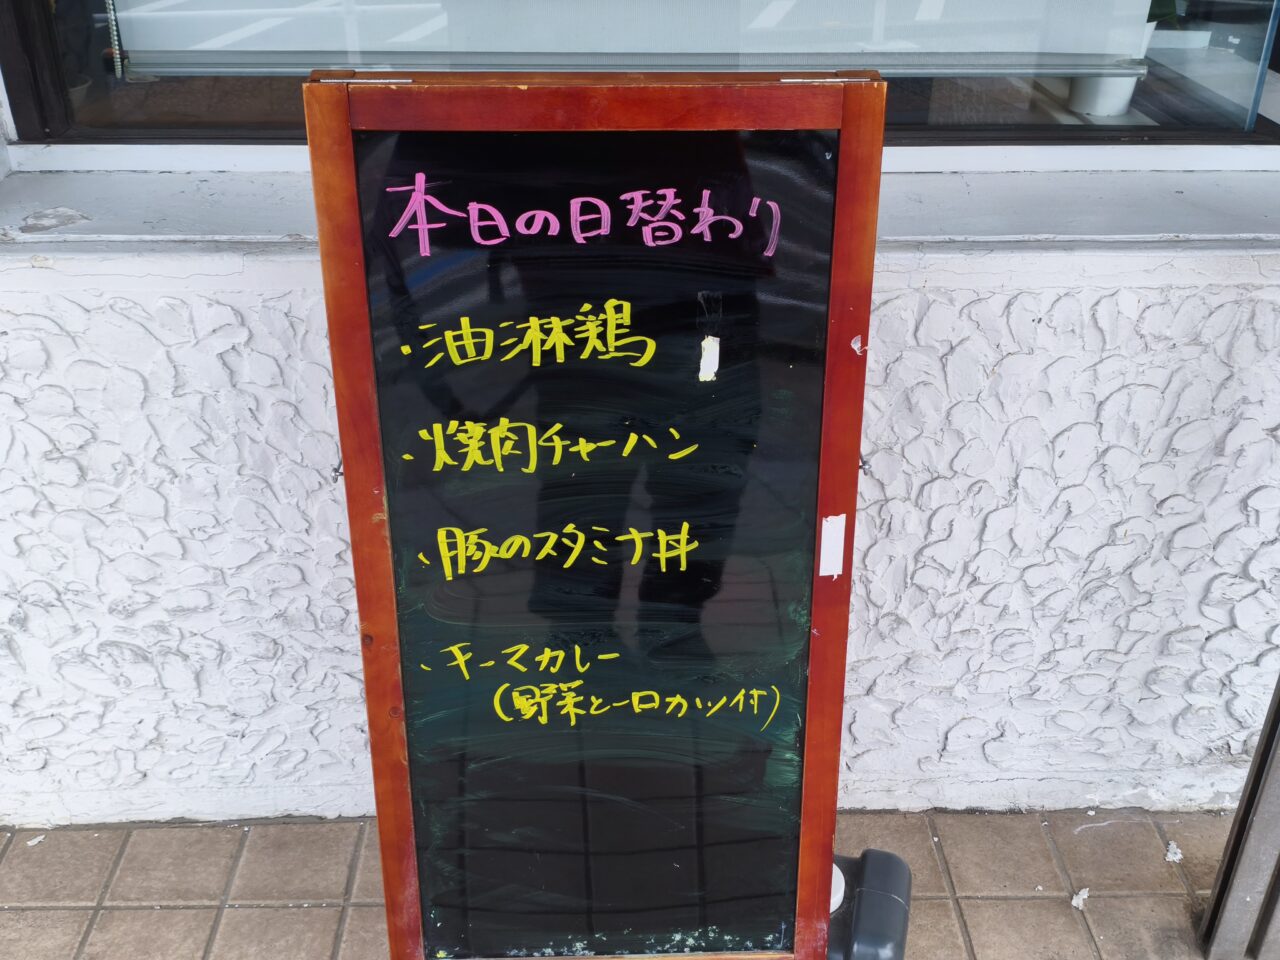 本日の日替わり
・油淋鶏
・焼肉チャーハン
・豚のスタミナ丼
・キーマカレー
(野菜と一口カツ付)